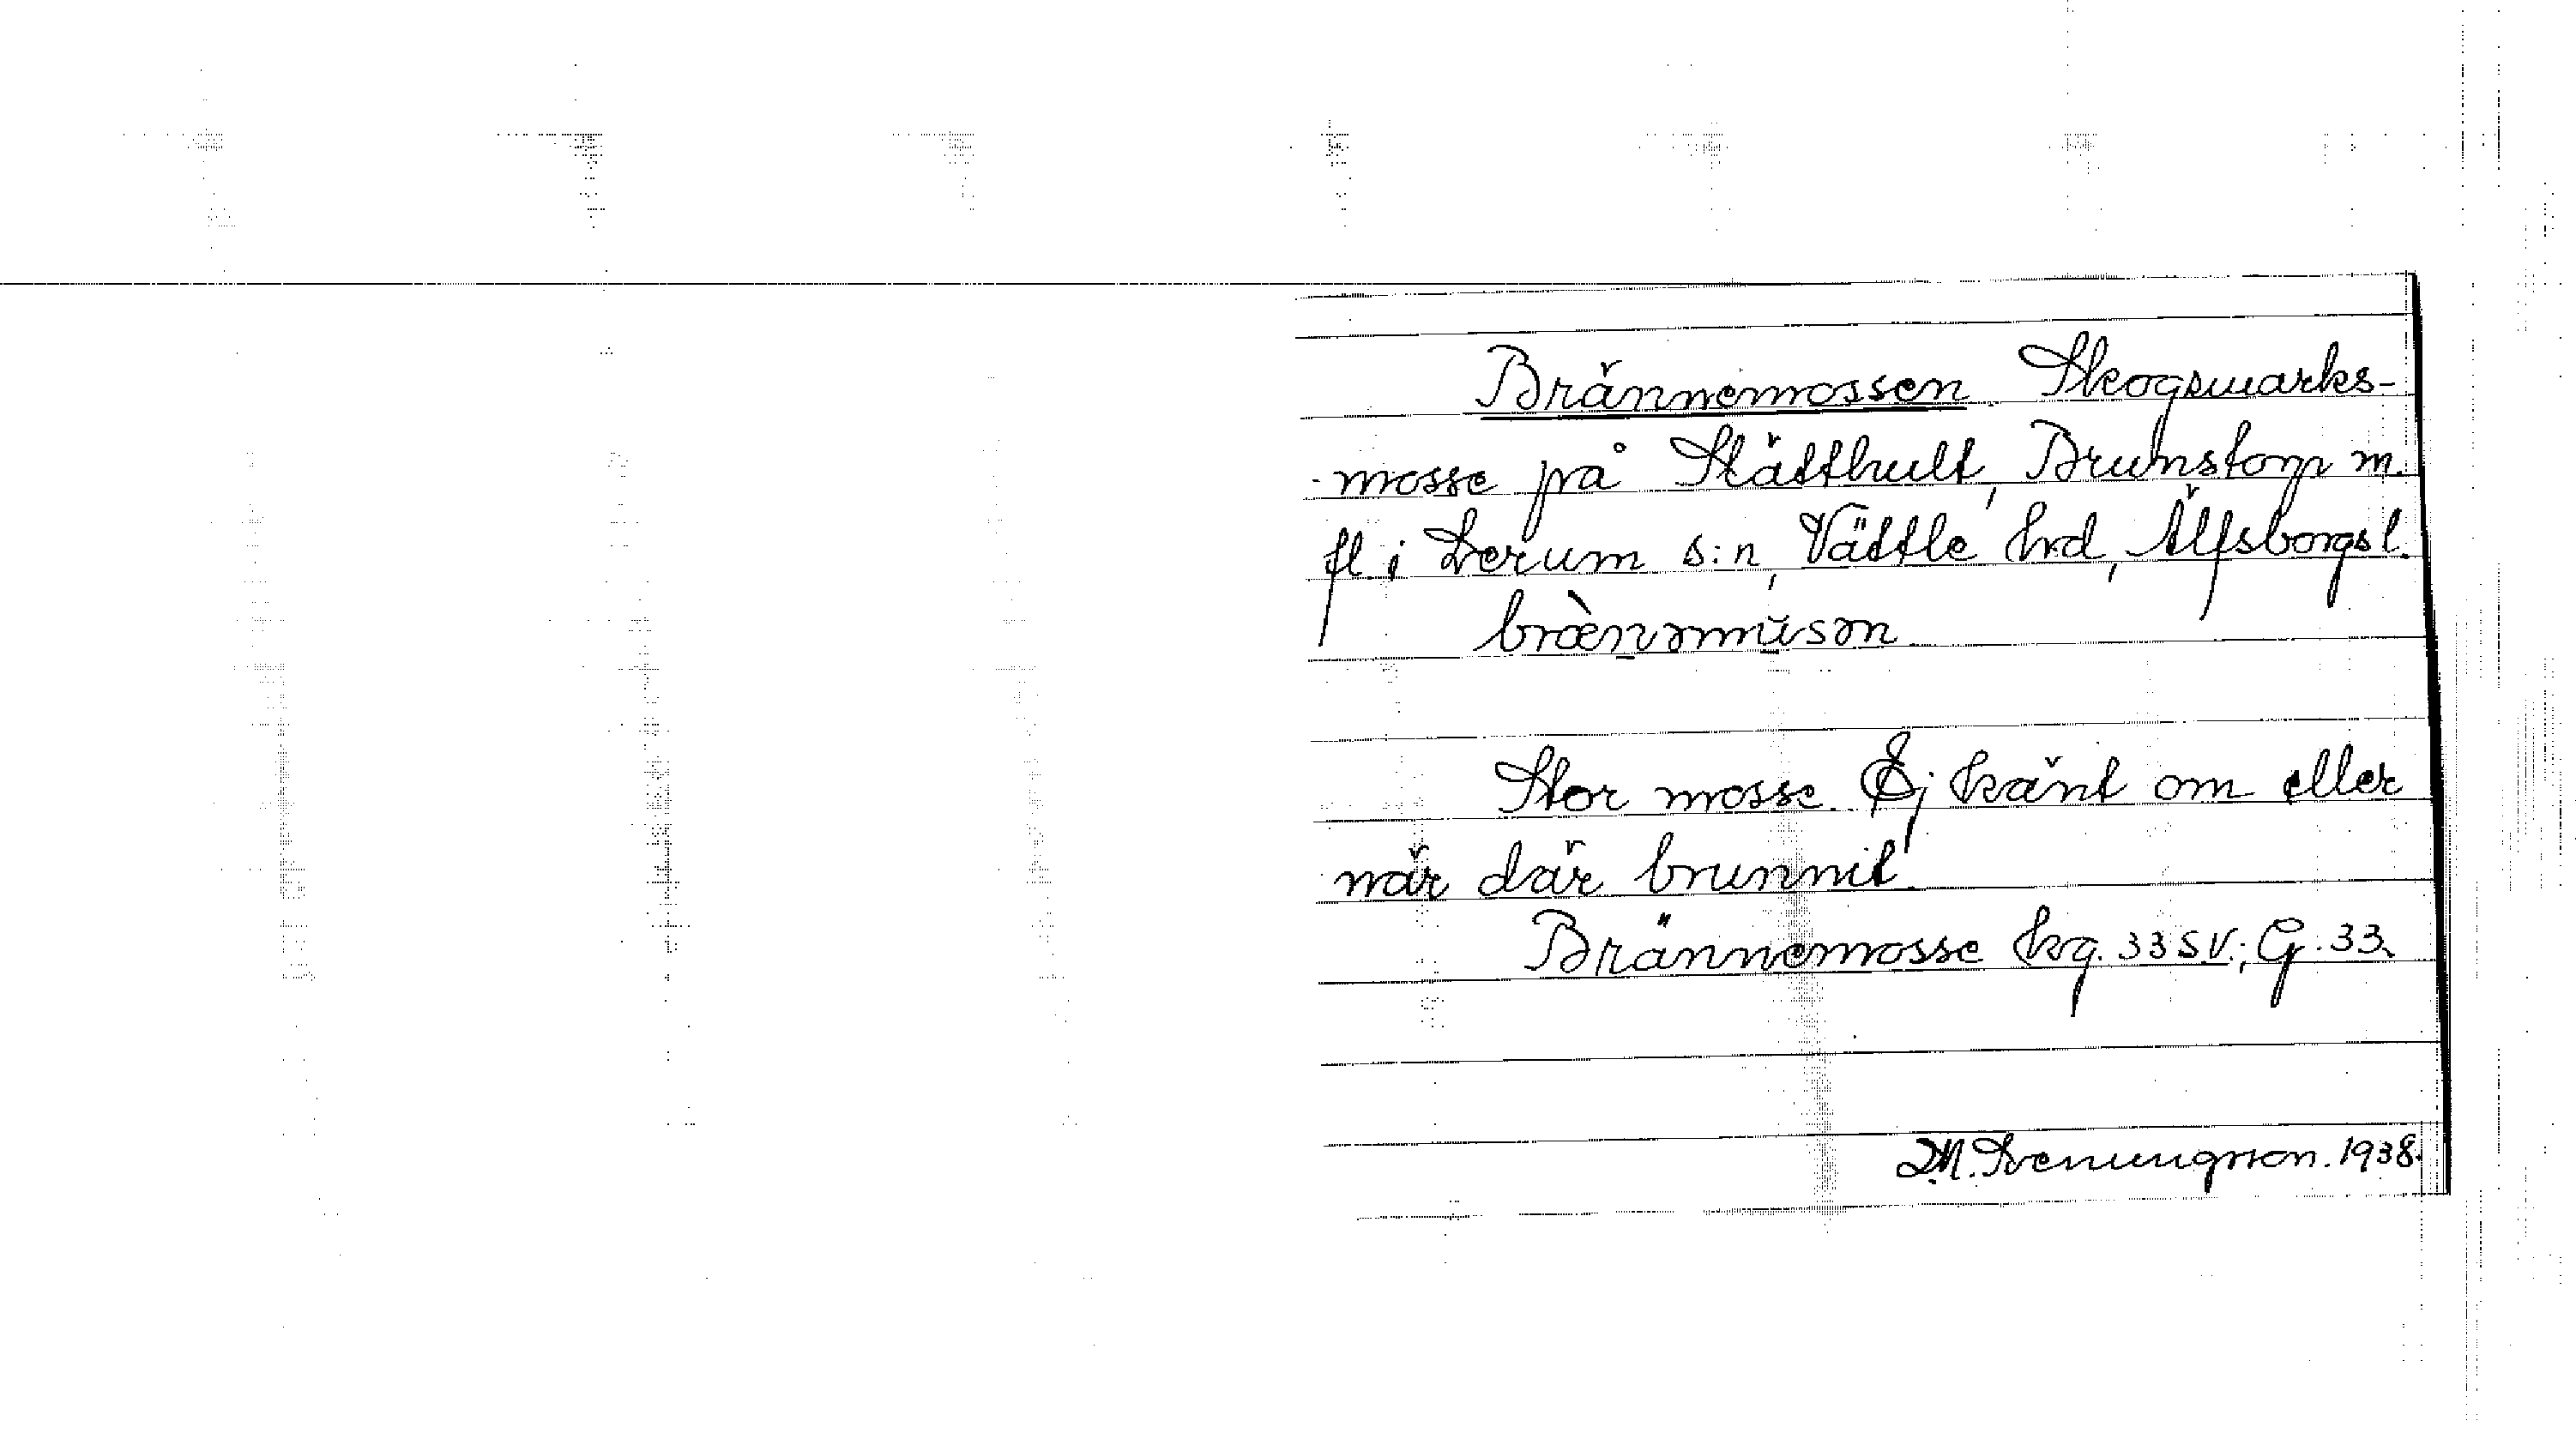 Brännemossen. Skogsmarks-
mosse på Stätthult, Brunstorp m.
fl. i Lerum s:n, Vättle hrd, Älfsborgs l.
bræ̀nəmusən
Stor mosse. Ej känt om eller
när där brunnit.
Brännemosse kg. 33 SV.; G. 33.
M. Svenungsson. 1938.